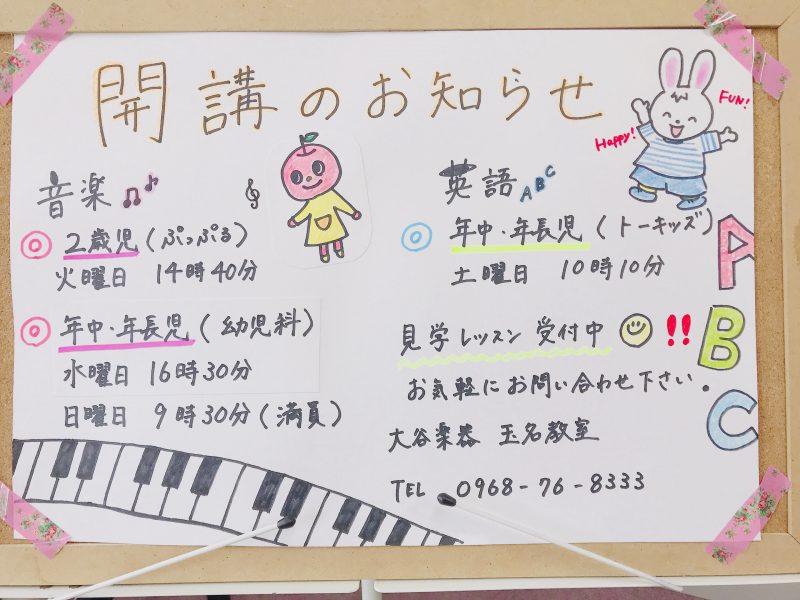 開講のお知らせ
音楽
◎ 2歳児(ぷっぷる)
火曜日 14時40分
◎ 年中・年長児(幼児科)
水曜日 16時30分
日曜日 9時30分(満員)
英語 ABC
◎ 年中・年長児(トーキッズ)
土曜日 10時10分
見学レッスン 受付中 !!
お気軽にお問い合わせ下さい。
大谷楽器 玉名教室
TEL 0968-76-8333
Happy!
FUN!
A
B
C